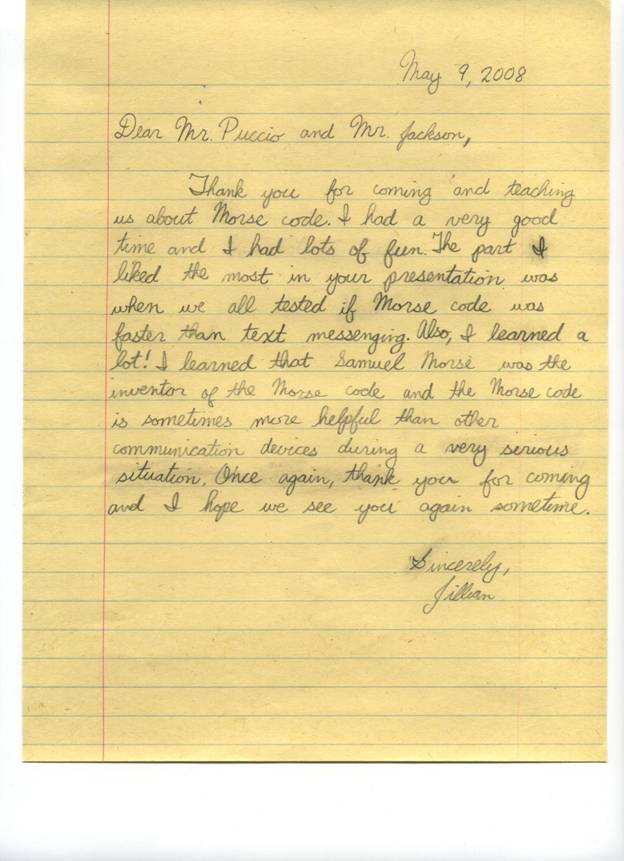 May 9, 2008
Dear Mr. Puccio and Mr. Jackson,
Thank you for coming and teaching
us about Morse code. I had a very good
time and I had lots of fun. The part I
liked the most in your presentation was
when we all tested if Morse code was
faster than text messenging. Also, I learned a
lot! I learned that Samuel Morse was the
inventor of the Morse code and the Morse code
is sometimes more helpful than other
communication devices during a very serious
situation. Once again, thank you for coming
and I hope we see you again sometime.
Sincerely,
Jillian